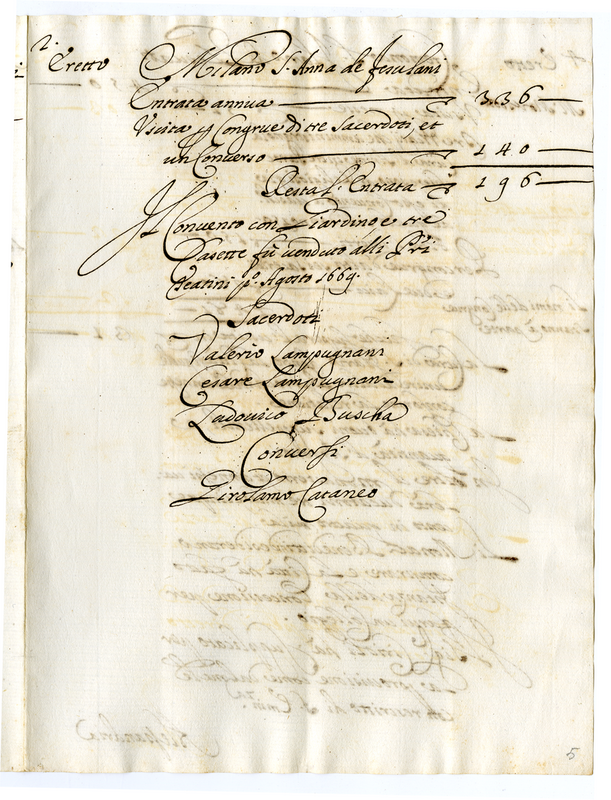 2.
Eretto Milano S. Anna de Jesulani
Entrata annua 336
Uscita p Congrue di tre Sacerdoti, et
un Converso 140
Resta l'Entrata 196
Il Convento con Giardino e tre
Casette fù venduto alli Pri
Teatini po. Agosto 1669.
Sacerdoti
Valerio Lampugnani
Cesare Lampugnani
Ludovico Buscha
Conversi
Girolamo Cataneo
5